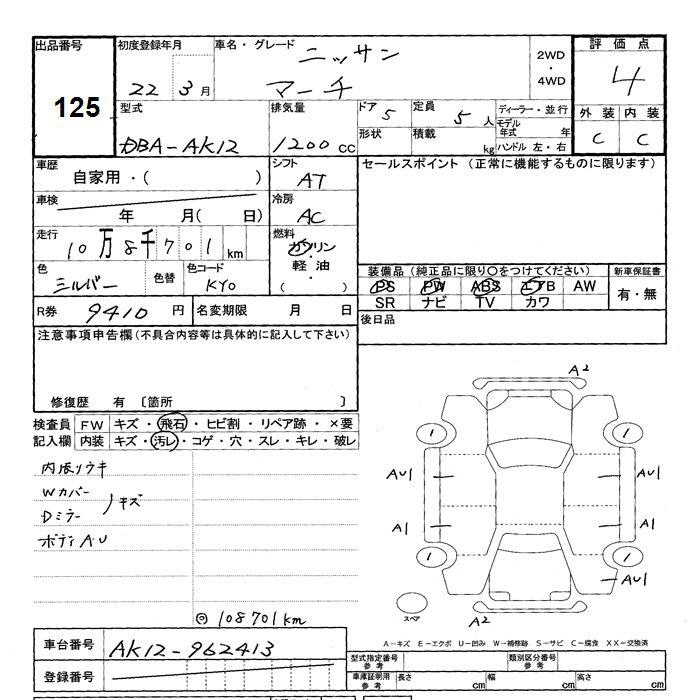 出品番号 初度登録年月 車名・グレード ニッサン 2WD・4WD 評価点
125 22 3月 マーチ 4
型式 排気量 ドア 5 定員 5人 ディーラー・並行 外装 内装
DBA-AK12 1200cc 形状 積載 kg モデル年式 年 C C
ハンドル 左・右
車歴 シフト セールスポイント (正常に機能するものに限ります)
自家用・( ) AT
車検 冷房
年 月( 日) AC
走行 10万8千701km 燃料 ガソリン・軽油・( )
色 シルバー 色替 色コード KY0
装備品 (純正品に限り○をつけてください) 新車保証書
PS PW ABS エアB AW 有・無
SR ナビ TV カワ
R券 9410円 名変期限 月 日 後日品
注意事項申告欄(不具合内容等は具体的に記入して下さい)
修復歴 有 〔箇所 〕
検査員 FW キズ・飛石・ヒビ割・リペア跡・×要
記入欄 内装 キズ・汚レ・コゲ・穴・スレ・キレ・破レ
内張リウキ
Wカバー
Dミラー キズ
ボディAU
◎108701km
A2
1 1
AU1 AU1
A1 A1
1 1
AU1
スペア A2
A-キズ E-エクボ U-凹み W-補修跡 S-サビ C-腐食 XX-交換済
車台番号 AK12-962413 型式指定番号 参考 類別区分番号 参考
登録番号 車庫証明用 参考 長さ cm 幅 cm 高さ cm